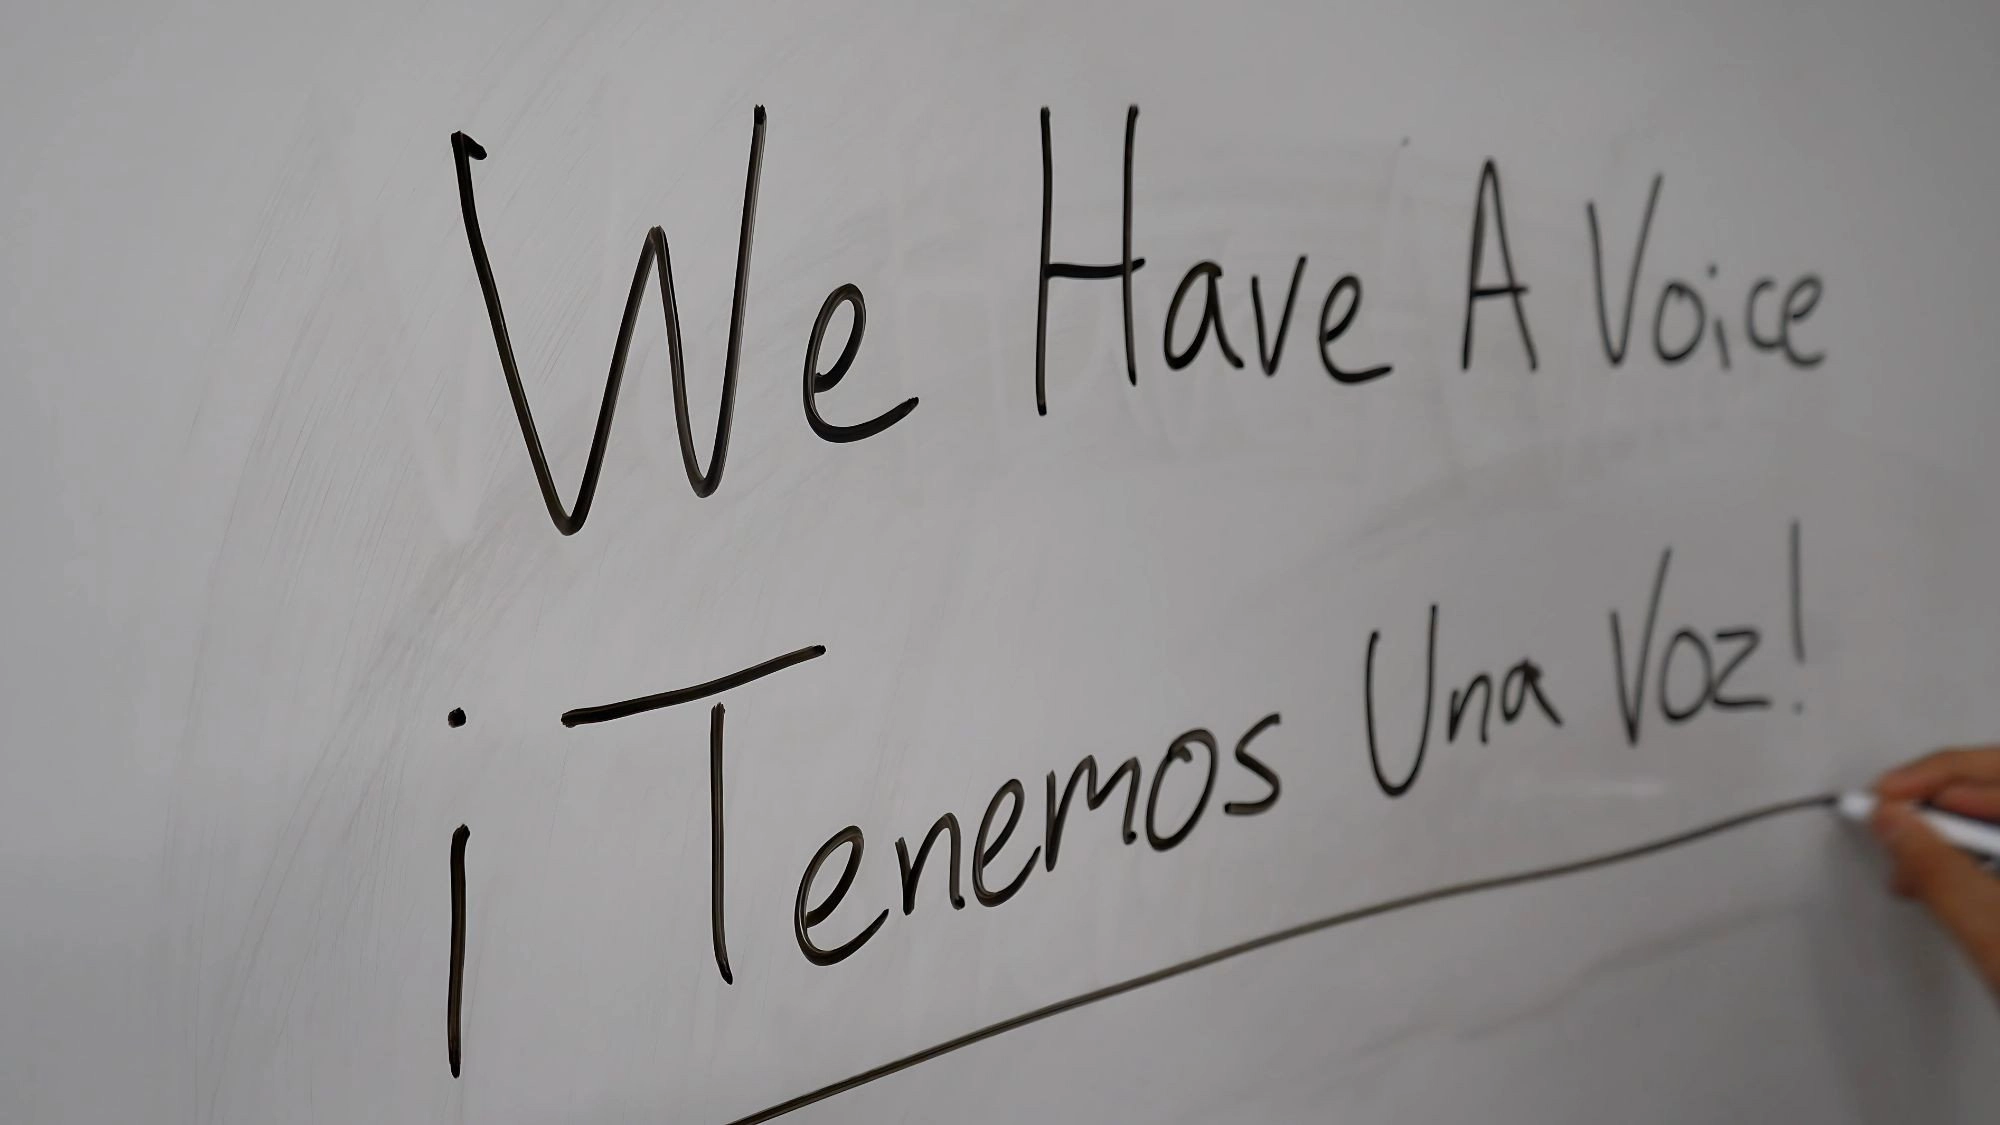 We Have A Voice
¡Tenemos Una Voz!